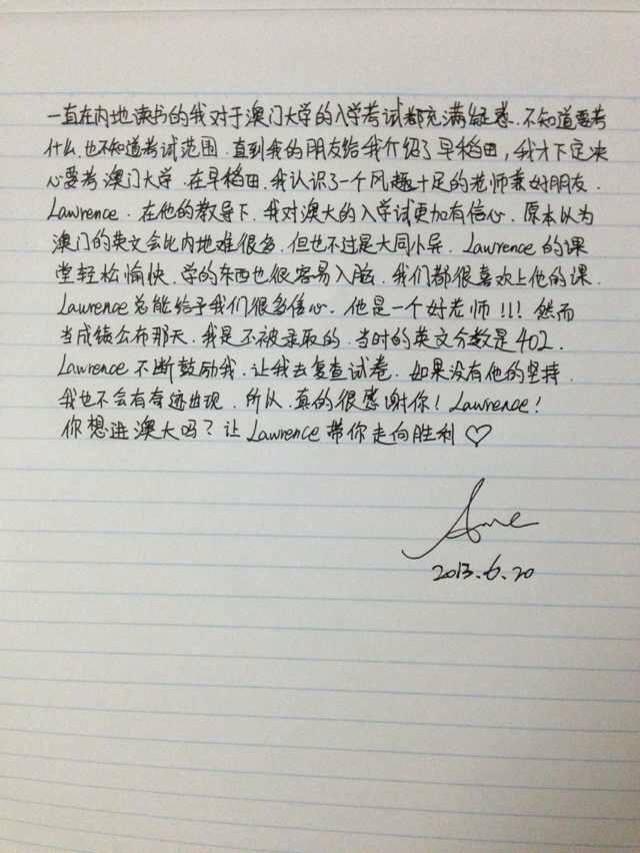 一直在内地读书的我对于澳门大学的入学考试都充满疑惑.不知道要考
什么.也不知道考试范围.直到我的朋友给我介绍了早稻田,我才下定决
心要考澳门大学.在早稻田.我认识了一个风趣十足的老师兼好朋友.
Lawrence.在他的教导下.我对澳大的入学试更加有信心.原本以为
澳门的英文会比内地难很多.但也不过是大同小异.Lawrence的课
堂轻松愉快.学的东西也很容易入脑.我们都很喜欢上他的课.
Lawrence总能给予我们很多信心.他是一个好老师!!!然而
当成绩公布那天.我是不被录取的.当时的英文分数是402.
Lawrence不断鼓励我.让我去复查试卷.如果没有他的坚持.
我也不会有奇迹出现.所以.真的很感谢你!Lawrence!
你想进澳大吗?让Lawrence带你走向胜利♡
2013.6.20